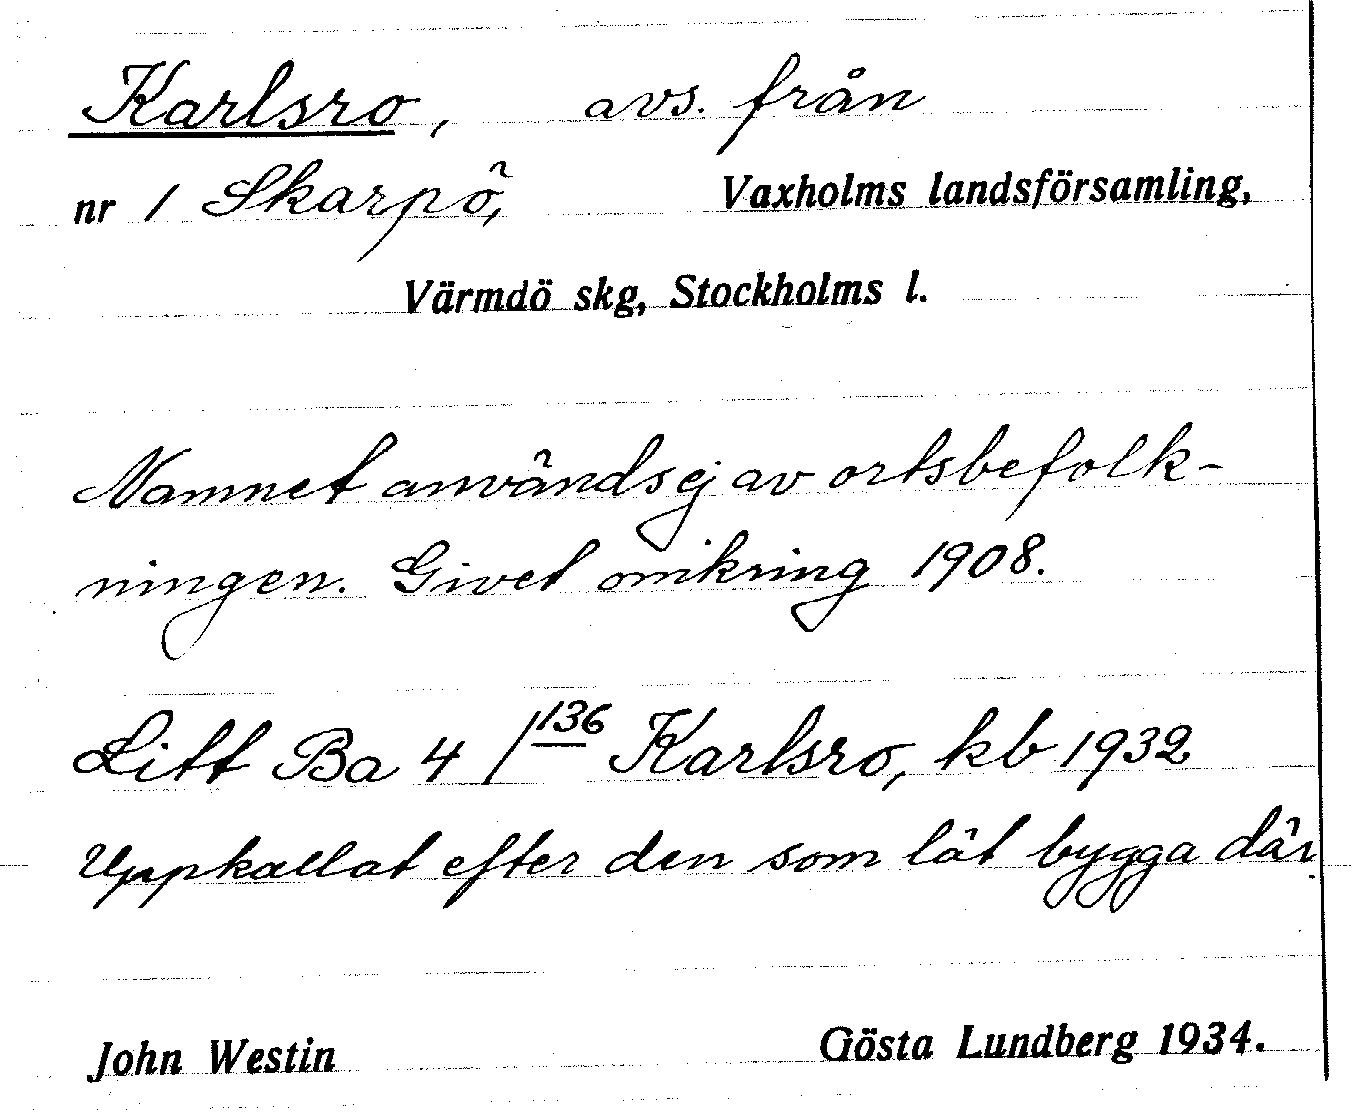 Karlsro, avs. från
nr 1 Skarpö, Vaxholms landsförsamling,
Värmdö skg, Stockholms l.
Namnet användsej av ortsbefolk-
ningen. Givet omkring 1908.
Litt Ba 4 /136 Karlsro, kb 1932
Uppkallat efter den som lät bygga där.
John Westin Gösta Lundberg 1934.